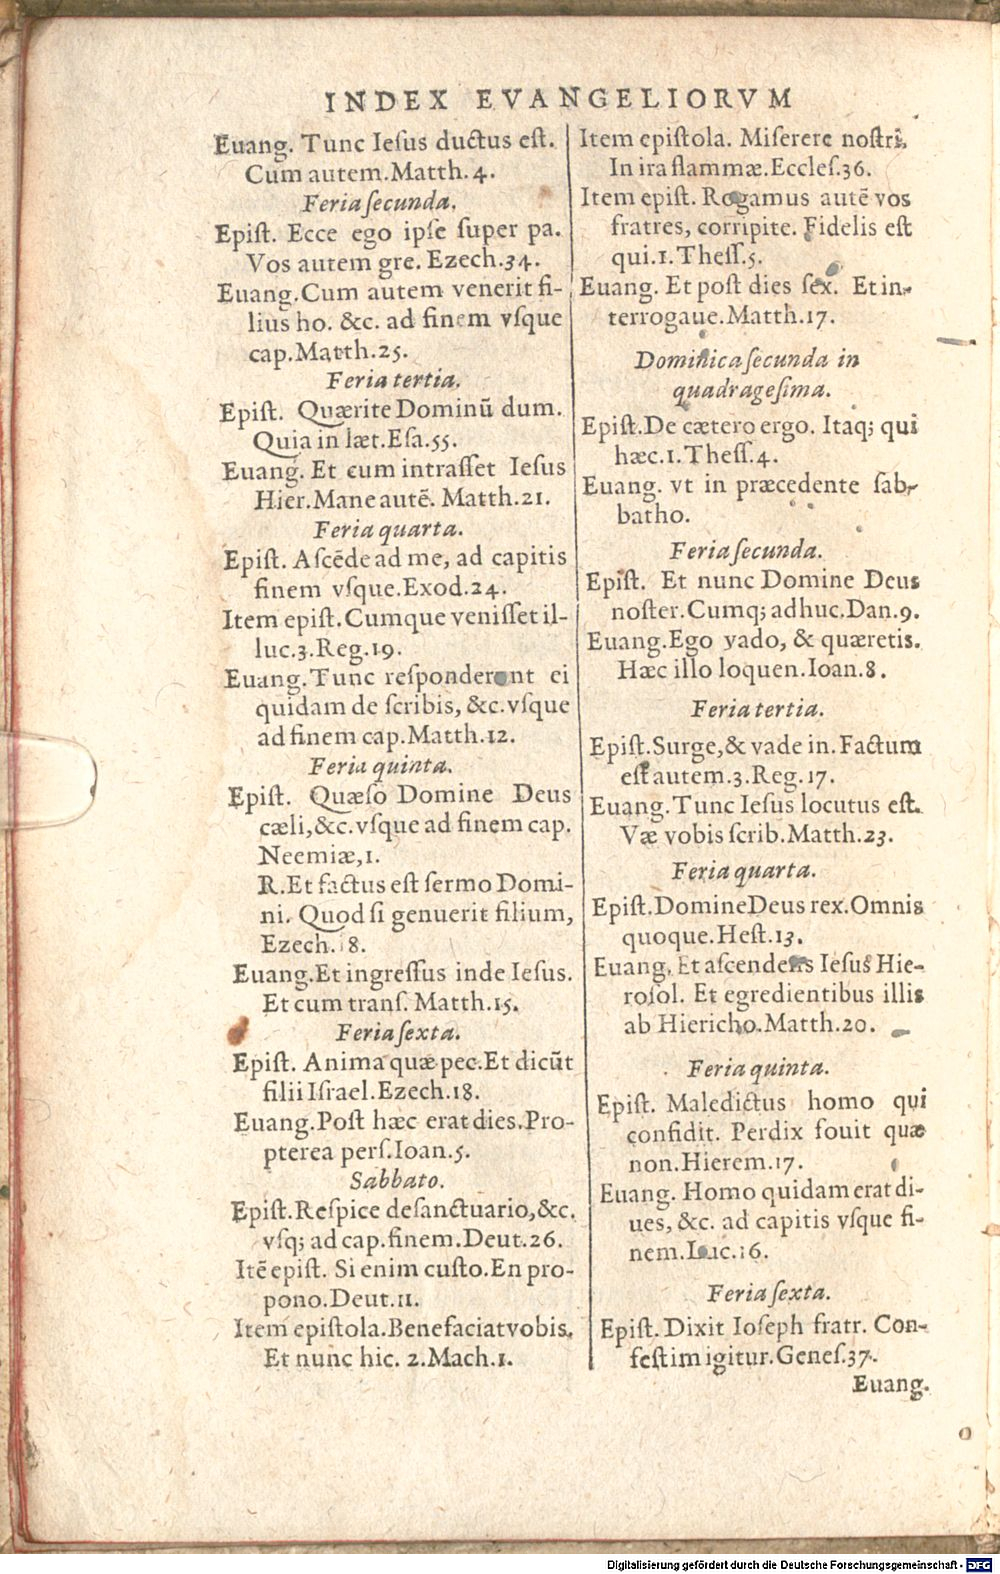 INDEX EVANGELIORVM
Euang. Tunc Iesus ductus est.
Cum autem. Matth. 4.
Feria secunda.
Epist. Ecce ego ipse super pa.
Vos autem gre. Ezech. 34.
Euang. Cum autem venerit fi-
lius ho. &c. ad finem vsque
cap. Matth. 25.
Feria tertia.
Epist. Quærite Dominū dum.
Quia in læt. Esa. 55.
Euang. Et cum intrasset Iesus
Hier. Mane autē. Matth. 21.
Feria quarta.
Epist. Ascēde ad me, ad capitis
finem vsque. Exod. 24.
Item epist. Cumque venisset il-
luc. 3. Reg. 19.
Euang. Tunc responderunt ei
quidam de scribis, &c. vsque
ad finem cap. Matth. 12.
Feria quinta.
Epist. Quæso Domine Deus
cæli, &c. vsque ad finem cap.
Neemiæ, 1.
R. Et factus est sermo Domi-
ni. Quod si genuerit filium,
Ezech. 18.
Euang. Et ingressus inde Iesus.
Et cum trans. Matth. 15.
Feria sexta.
Epist. Anima quæ pec. Et dicūt
filii Israel. Ezech. 18.
Euang. Post hæc erat dies. Pro-
pterea pers. Ioan. 5.
Sabbato.
Epist. Respice de sanctuario, &c.
vsq; ad cap. finem. Deut. 26.
Itē epist. Si enim custo. En pro-
pono. Deut. 11.
Item epistola. Benefaciat vobis.
Et nunc hic. 2. Mach. 1.
Item epistola. Miserere nostri.
In ira flammæ. Eccles. 36.
Item epist. Rogamus autē vos
fratres, corripite. Fidelis est
qui. 1. Thess. 5.
Euang. Et post dies sex. Et in-
terrogaue. Matth. 17.
Dominica secunda in
quadragesima.
Epist. De cætero ergo. Itaq; qui
hæc. 1. Thess. 4.
Euang. vt in præcedente sab-
batho.
Feria secunda.
Epist. Et nunc Domine Deus
noster. Cumq; adhuc. Dan. 9.
Euang. Ego vado, & quæretis.
Hæc illo loquen. Ioan. 8.
Feria tertia.
Epist. Surge, & vade in. Factum
est autem. 3. Reg. 17.
Euang. Tunc Iesus locutus est.
Væ vobis scrib. Matth. 23.
Feria quarta.
Epist. Domine Deus rex. Omnis
quoque. Hest. 13.
Euang. Et ascendens Iesus Hie-
rosol. Et egredientibus illis
ab Hiericho. Matth. 20.
Feria quinta.
Epist. Maledictus homo qui
confidit. Perdix fouit quæ
non. Hierem. 17.
Euang. Homo quidam erat di-
ues, &c. ad capitis vsque fi-
nem. Luc. 16.
Feria sexta.
Epist. Dixit Ioseph fratr. Con-
festim igitur. Genes. 37.
Euang.
Digitalisierung gefördert durch die Deutsche Forschungsgemeinschaft - DFG